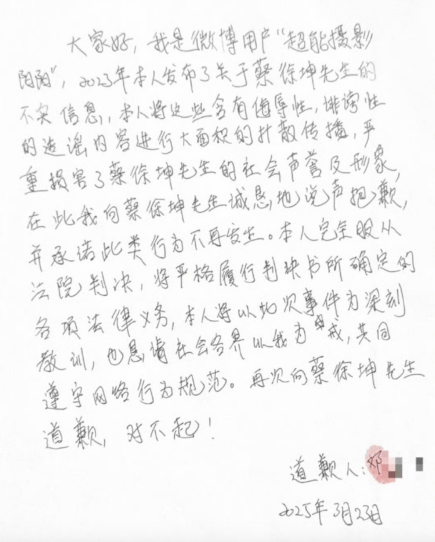 大家好，我是微博用户“超能摄影
阳阳”，2023年本人发布了关于蔡徐坤先生的
不实信息，本人将这些含有侮辱性、诽谤性
的造谣内容进行大面积的扩散传播，严
重损害了蔡徐坤先生的社会声誉及形象，
在此我向蔡徐坤先生诚恳地说声抱歉，
并承诺此类行为不再发生。本人完全服从
法院判决，将严格履行判决书所确定的
各项法律义务，本人将以此次事件为深刻
教训，也恳请社会各界以我为戒，共同
遵守网络行为规范。再次向蔡徐坤先生
道歉，对不起！
道歉人：邓
2025年3月23日